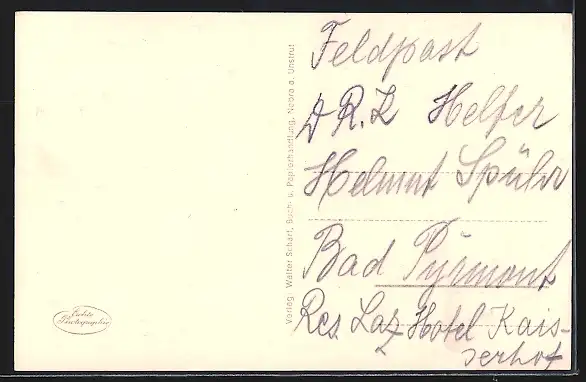 Feldpost
D R.K Helfer
Helmut Spühr
Bad Pyrmont
Res Laz Hotel Kais-
serhof
Verlag Walter Scharf, Buch- u. Papierhandlung, Nebra a. Unstrut
Echte
Photographie